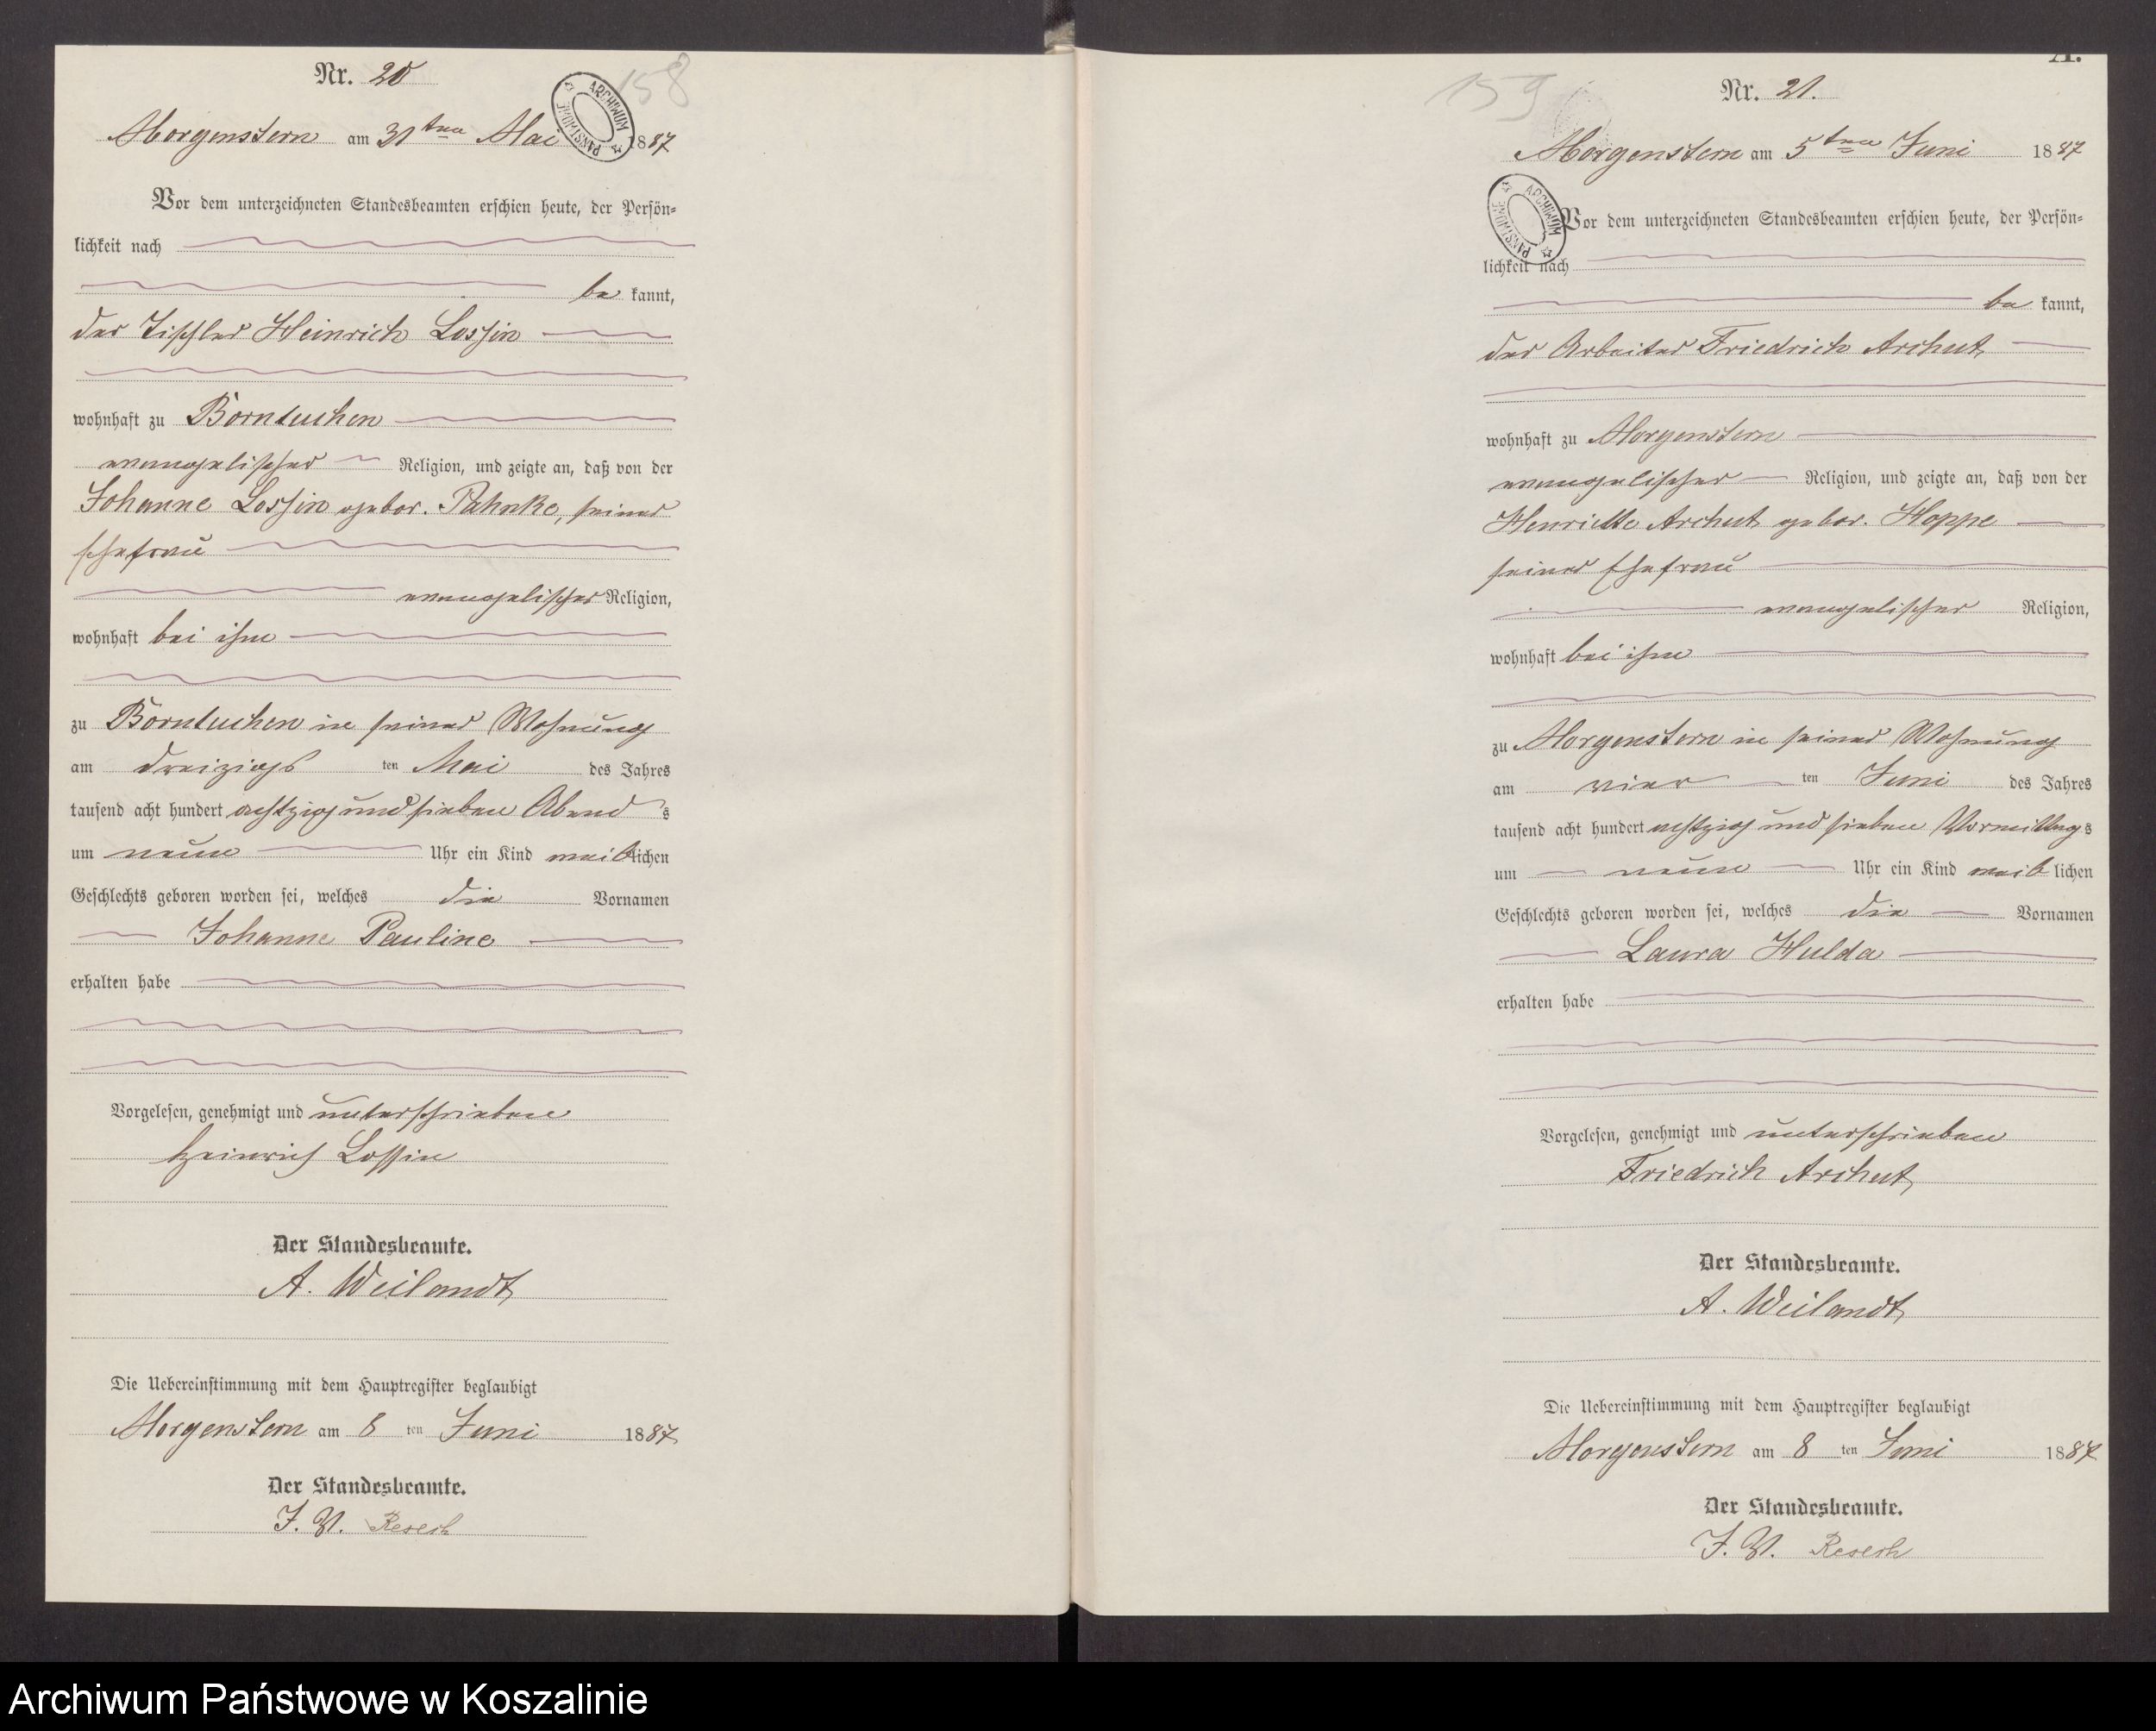 Nr. 20
158
ARCHIWUM PAŃSTWOWE
Morgenstern am 31ten Mai 1887
Vor dem unterzeichneten Standesbeamten erschien heute, der Persön=
lichkeit nach
be kannt,
der Tischler Heinrich Lossin
wohnhaft zu Borntuchen
evangelischer Religion, und zeigte an, daß von der
Johanne Lossin gebor. Pahnke, seiner
Ehefrau
evangelischer Religion,
wohnhaft bei ihm
zu Borntuchen in seiner Wohnung
am dreizigs ten Mai des Jahres
tausend acht hundert achtzig und sieben Abend s
um neun Uhr ein Kind weiblichen
Geschlechts geboren worden sei, welches die Vornamen
Johanne Pauline
erhalten habe
Vorgelesen, genehmigt und unterschrieben
Heinrich Lossin
Der Standesbeamte.
A. Weilandt
Die Uebereinstimmung mit dem Hauptregister beglaubigt
Morgenstern am 8 ten Juni 1887
Der Standesbeamte.
J. V. Resech
A.
Nr. 21.
159
Morgenstern am 5ten Juni 1887
ARCHIWUM PAŃSTWOWE
Vor dem unterzeichneten Standesbeamten erschien heute, der Persön=
lichkeit nach
be kannt,
der Arbeiter Friedrich Archut
wohnhaft zu Morgenstern
evangelischer Religion, und zeigte an, daß von der
Henriette Archut gebor. Hoppe
seiner Ehefrau
evangelischer Religion,
wohnhaft bei ihm
zu Morgenstern in seiner Wohnung
am vier ten Juni des Jahres
tausend acht hundert achtzig und sieben Vormittag s
um neun Uhr ein Kind weib lichen
Geschlechts geboren worden sei, welches die Vornamen
Laura Hulda
erhalten habe
Vorgelesen, genehmigt und unterschrieben
Friedrich Archut
Der Standesbeamte.
A. Weilandt
Die Uebereinstimmung mit dem Hauptregister beglaubigt
Morgenstern am 8 ten Juni 1887
Der Standesbeamte.
J. V. Resech
Archiwum Państwowe w Koszalinie